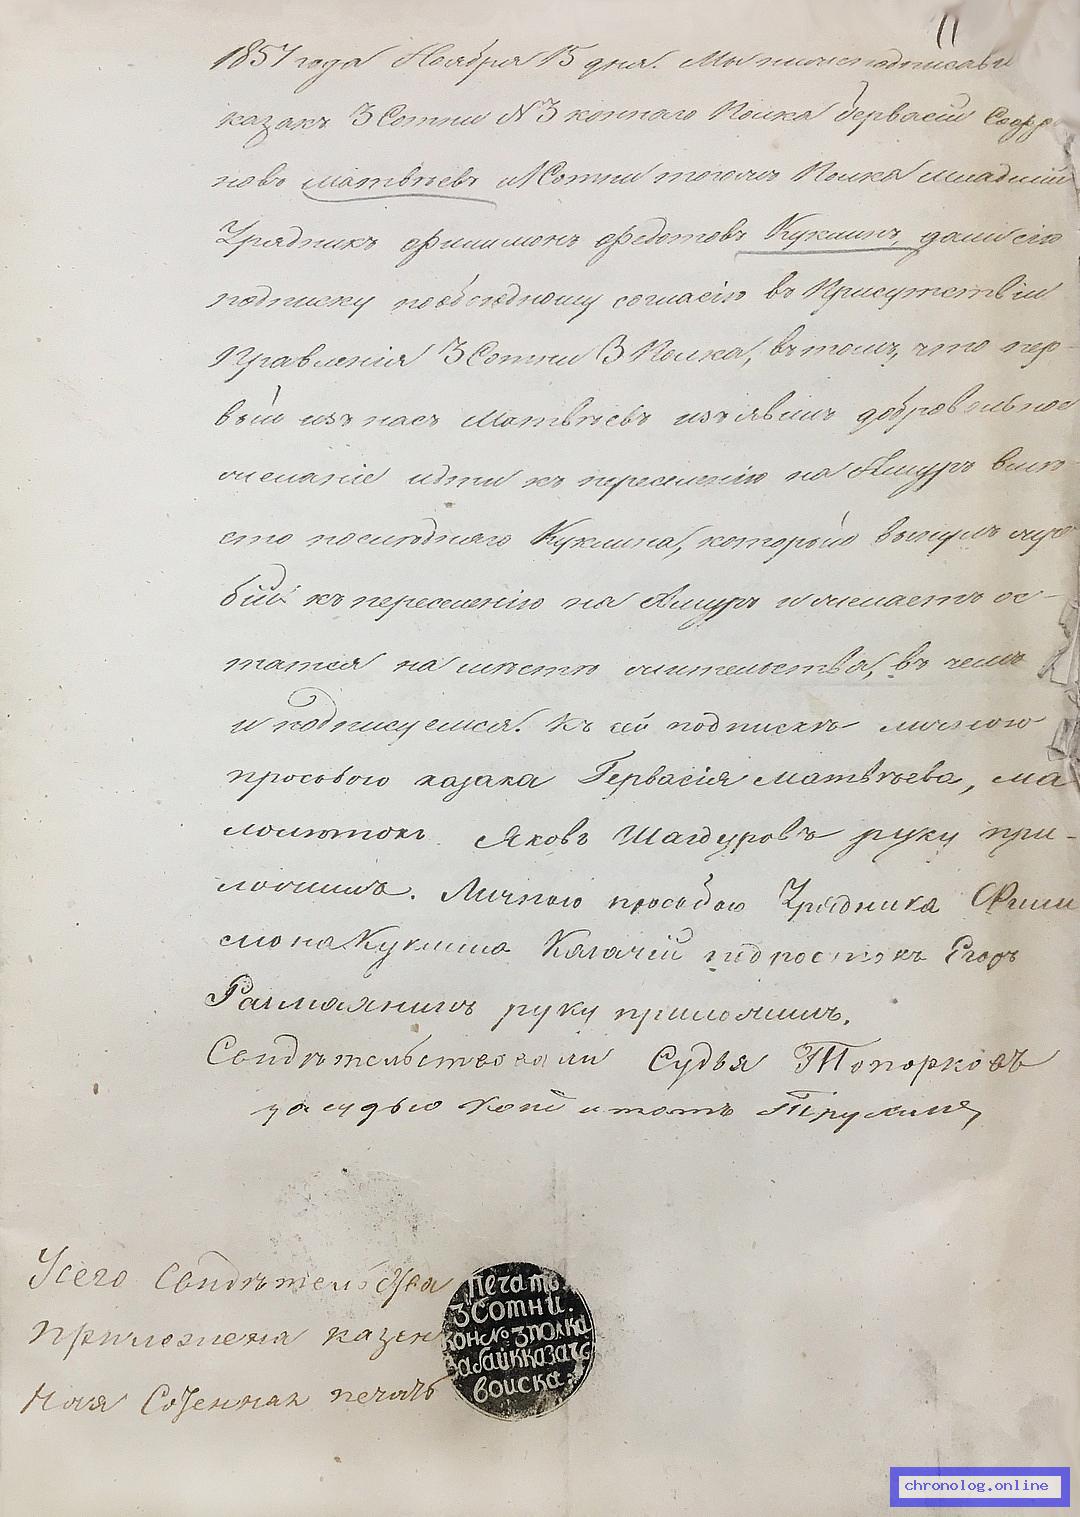 11
1857 года Ноября 15 дня. Мы нижеподписавш
казакъ 3 Сотни №3 коннаго Полка Гервасій Софро
новъ Матвѣевъ и Сотни тогожъ Полка младшій
Урядникъ Филимонъ Федотовъ Куклинъ, дали сію
подписку по обоюдному согласію въ Присутствіи
Правленія 3 Сотни 3 Полка, въ томъ, что пер-
вый изъ насъ Матвѣевъ изъявилъ добровольное
желаніе идти къ переселенію на Амуръ вмѣ-
сто послѣдняго Куклина, который вынулъ жре
бій къ переселенію на Амуръ и желаетъ ос-
татся на мѣстѣ жительства, въ чемъ
и подписуемся. Къ сей подпискѣ личною
прозбою казака Гервасія Матвѣева, ма
лолѣтокъ Яковъ Шагдуровъ руку при-
ложилъ. Личною прозбою Урядника Фили
мона Куклина Казачій подростокъ Егоръ
руку приложилъ.
Свидѣтельствовали Судья Топорковъ
за судью
Усего Свидѣтельства
приложена казен
ная Сотенная печать
Печать
3 Сотни.
кон №3 полка
Забайк казач
войска
chronolog.online